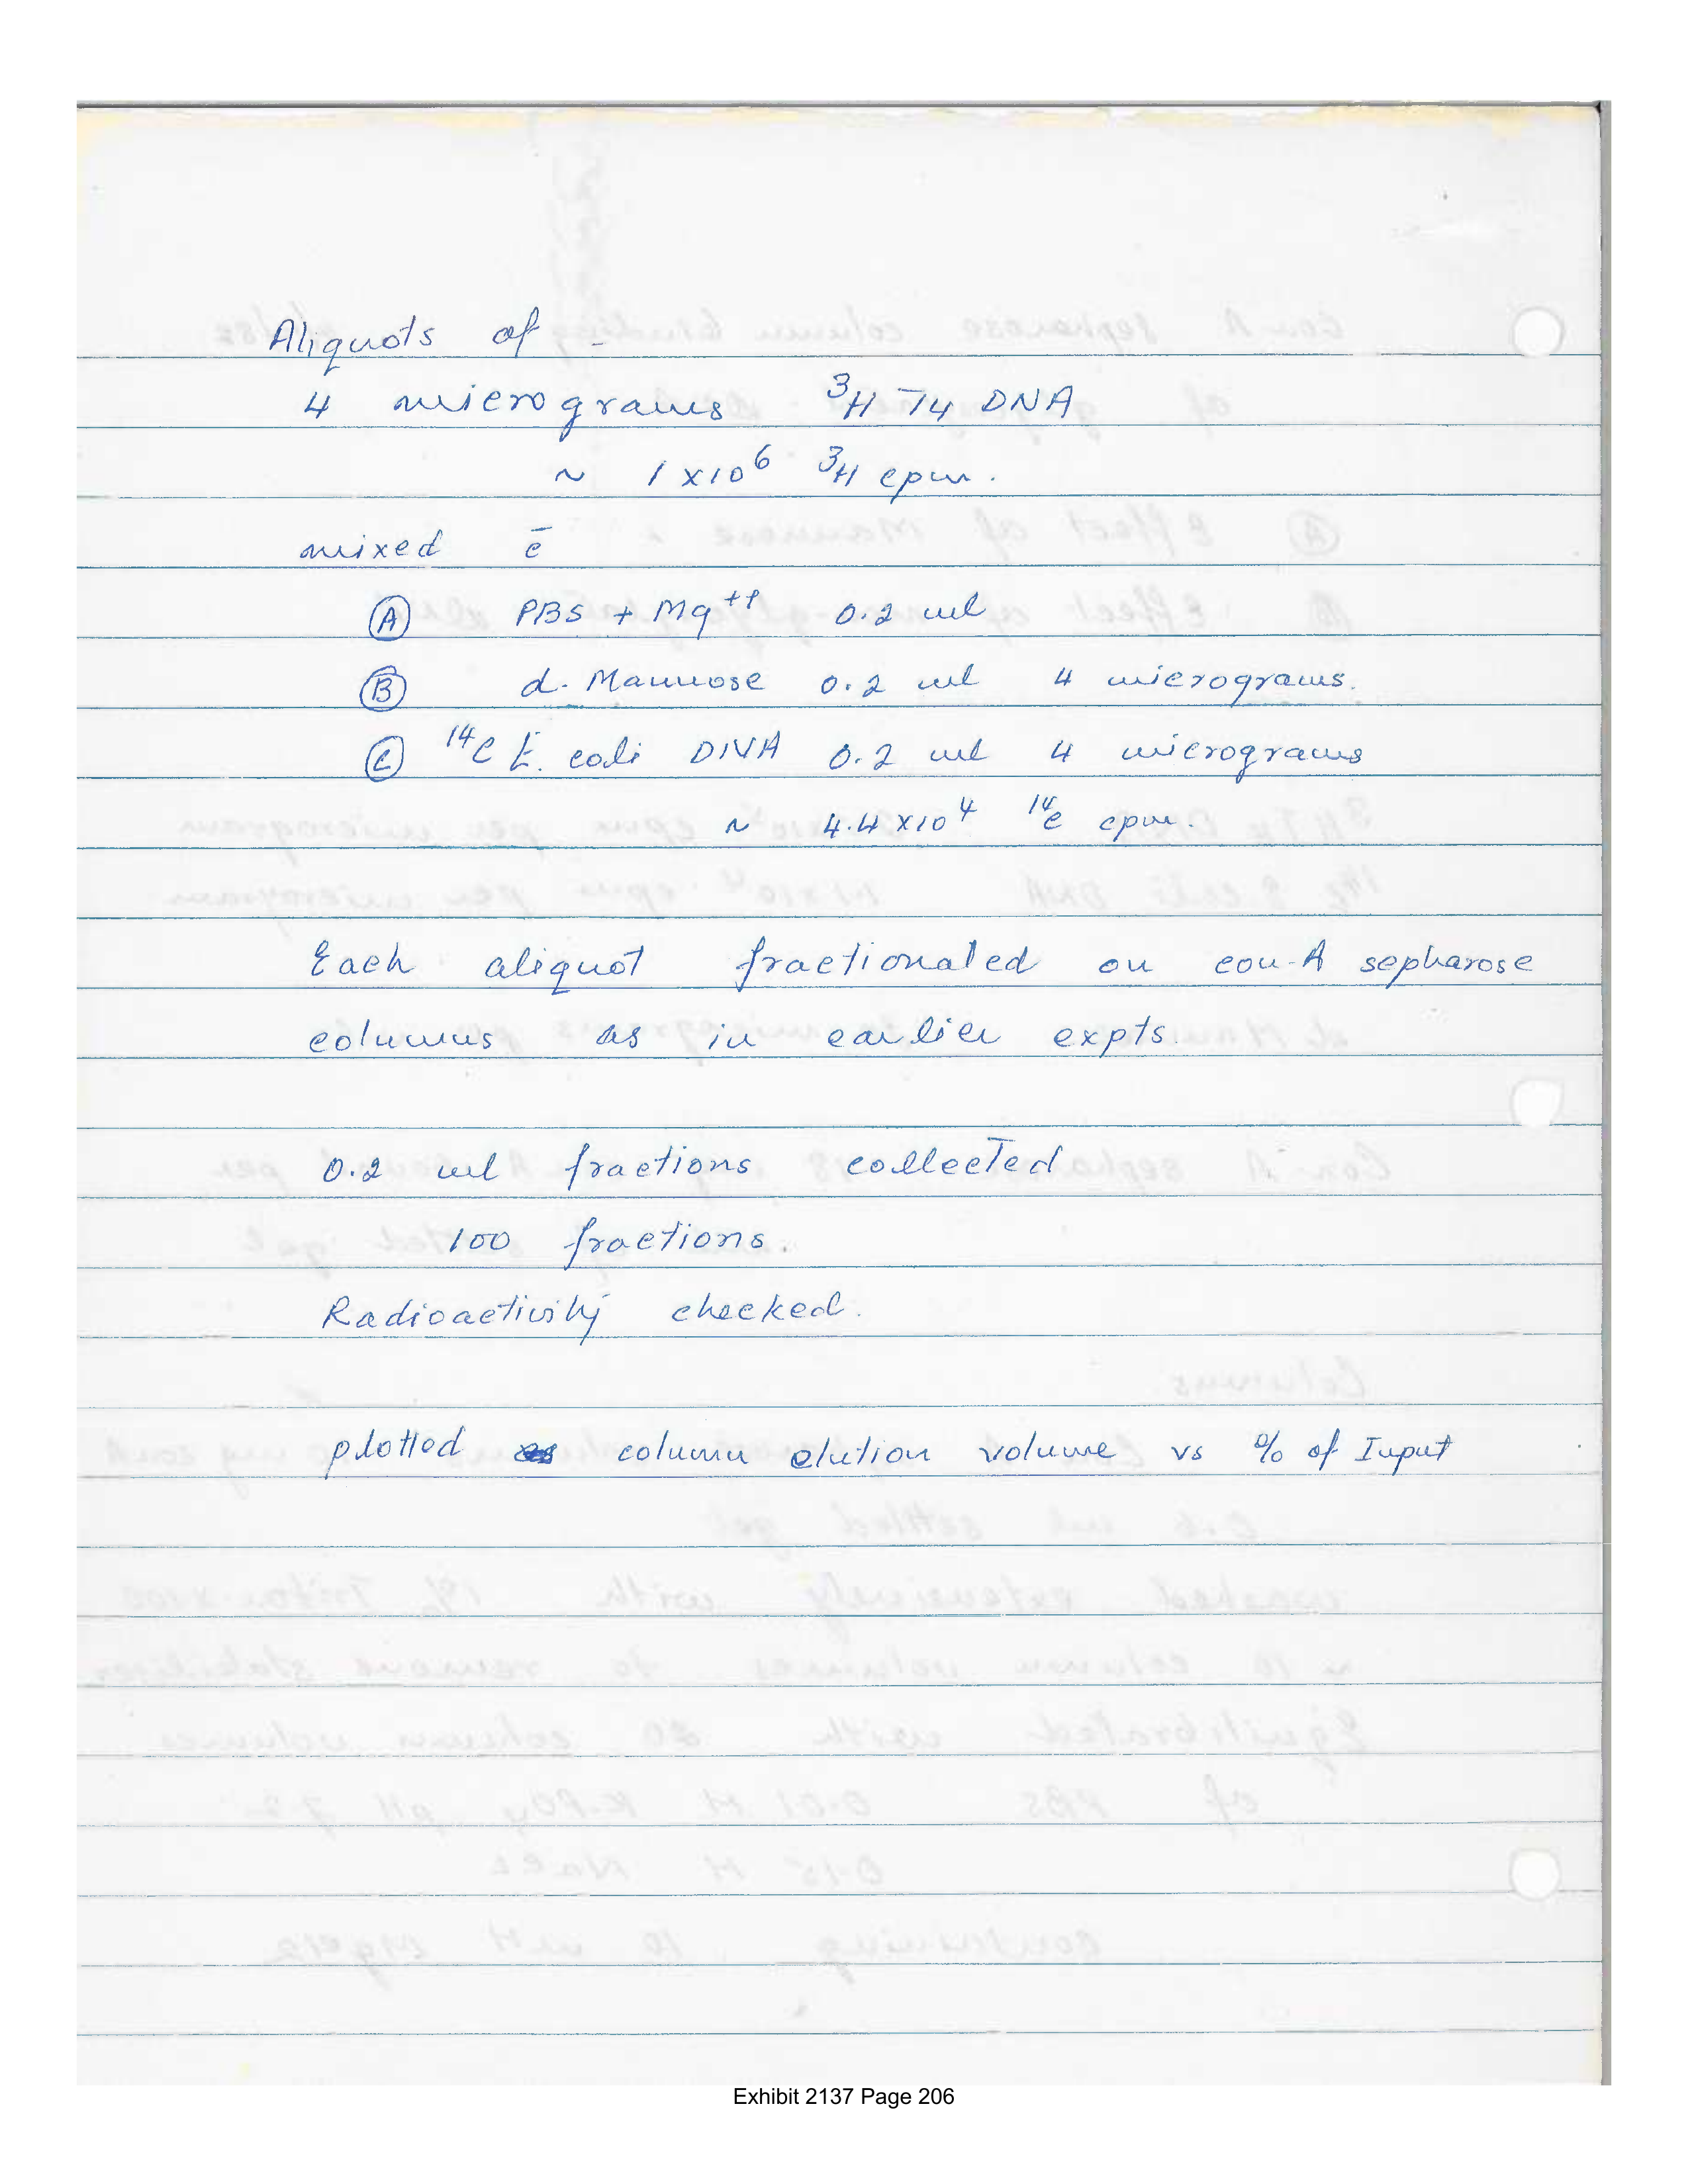 Aliquots of -
4 micrograms ³H T4 DNA
~ 1x10⁶ ³H cpm.
mixed c̄
Ⓐ PBS + Mg⁺⁺ 0.2 ml
Ⓑ d. Mannose 0.2 ml 4 micrograms.
Ⓒ ¹⁴C E. coli DNA 0.2 ml 4 micrograms
~ 4.4x10⁴ ¹⁴C cpm.
Each aliquot fractionated on con-A sepharose
columns as in earlier expts.
0.2 ml fractions collected
100 fractions.
Radioactivity checked.
plotted column elution volume vs % of Input
Exhibit 2137 Page 206